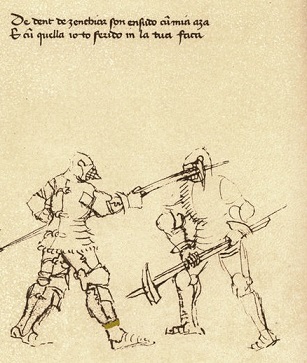 De dent de zenchiar son ensido cū mia aza
E cū quella io to ferido in la tua faza